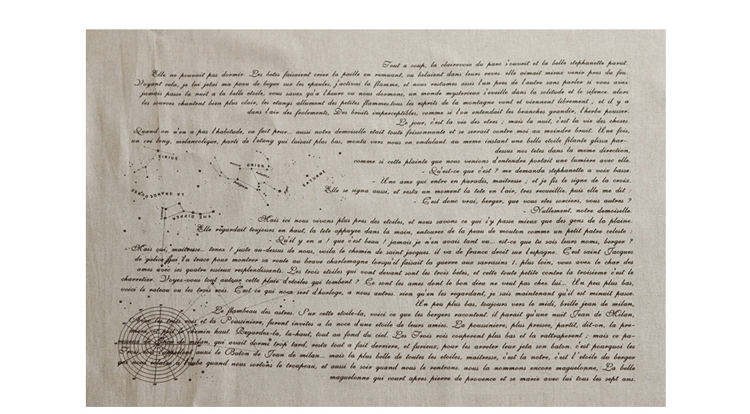 Tout a coup, la clairevoix du parc s'ouvrit et la belle stephanette parut.
Elle ne pouvait pas dormir. Les betes faisaient crier la paille en remuant, ou belaient dans leurs reves. elle aimait mieux venir pres du feu.
Voyant cela, je lui jetai ma peau de bique sur les epaules, j'activai la flamme, et nous restames assis l'un pres de l'autre sans parler. si vous avez
jamais passe la nuit a la belle etoile, vous savez qu'a l'heure ou nous dormons, un monde mysterieux s'eveille dans la solitude et le silence. alors
les sources chantent bien plus clair, les etangs allument des petites flammes.tous les esprits de la montagne vont et viennent librement ; et il y a
dans l'air des frolements, Des bruits imperceptibles, comme si l'on entendait les branches grandir, l'herbe pousser.
Le jour, c'est la vie des etres ; mais la nuit, c'est la vie des choses.
Quand on n'en a pas l'habitude, ca fait peur... aussi notre demoiselle etait toute frissonnante et se serrait contre moi au moindre bruit. Une fois,
un cri long, melancolique, parti de l'etang qui luisait plus bas, monta vers nous en ondulant. au meme instant une belle etoile filante glissa par-
dessus nos tetes dans la meme direction,
comme si cette plainte que nous venions d'entendre portait une lumiere avec elle.
- Qu'est-ce que c'est ? me demanda stephanette a voix basse.
- Une ame qui entre en paradis, maitresse ; et je fis le signe de la croix.
Elle se signa aussi, et resta un moment la tete en l'air, tres recueillie. puis elle me dit :
- C'est donc vrai, berger, que vous etes sorciers, vous autres ?
- Nullement, notre demoiselle.
Mais ici nous vivons plus pres des etoiles, et nous savons ce qui s'y passe mieux que des gens de la plaine.
Elle regardait toujours en haut, la tete appuyee dans la main, entouree de la peau de mouton comme un petit patre celeste :
- Qu'il y en a ! que c'est beau ! jamais je n'en avais tant vu... est-ce que tu sais leurs noms, berger ?
- Mais oui, maitresse... tenez ! juste au-dessus de nous, voila le chemin de saint jacques. il va de france droit sur l'espagne. C'est saint Jacques
de galice qui l'a trace pour montrer sa route au brave charlemagne lorsqu'il faisait la guerre aux sarrasins 1. plus loin, vous avez le char des
ames avec ses quatre essieux resplendissants. Les trois etoiles qui vont devant sont les trois betes, et cette toute petite contre la troisieme c'est le
charretier. Voyez-vous tout autour cette pluie d'etoiles qui tombent ? Ce sont les ames dont le bon dieu ne veut pas chez lui... Un peu plus bas,
voici le rateau ou les trois rois. C'est ce qui nous sert d'horloge, a nous autres. rien qu'en les regardant, je sais maintenant qu'il est minuit passe.
Un peu plus bas, toujours vers le midi, brille jean de milan,
Le flambeau des astres. Sur cette etoile-la, voici ce que les bergers racontent. il parait qu'une nuit Jean de Milan,
avec les trois rois et la Poussiniere, furent invites a la noce d'une etoile de leurs amies. La poussiniere, plus pressee, partit, dit-on, la pre-
miere, et prit le chemin haut. Regardez-la, la-haut, tout au fond du ciel. Les Trois rois couperent plus bas et la rattraperent ; mais ce pa-
resseux de Jean de milan, qui avait dormi trop tard, resta tout a fait derriere, et furieux, pour les arreter leur jeta son baton. c'est pourquoi les
Trois rois s'appellent aussi le Baton de Jean de milan... mais la plus belle de toutes les etoiles, maitresse, c'est la notre, c'est l'etoile du berger
qui nous eclaire a l'aube quand nous sortons le troupeau, et aussi le soir quand nous le rentrons. nous la nommons encore maguelonne, La belle
maguelonne qui court apres pierre de provence et se marie avec lui tous les sept ans.
SIRIUS
ORION